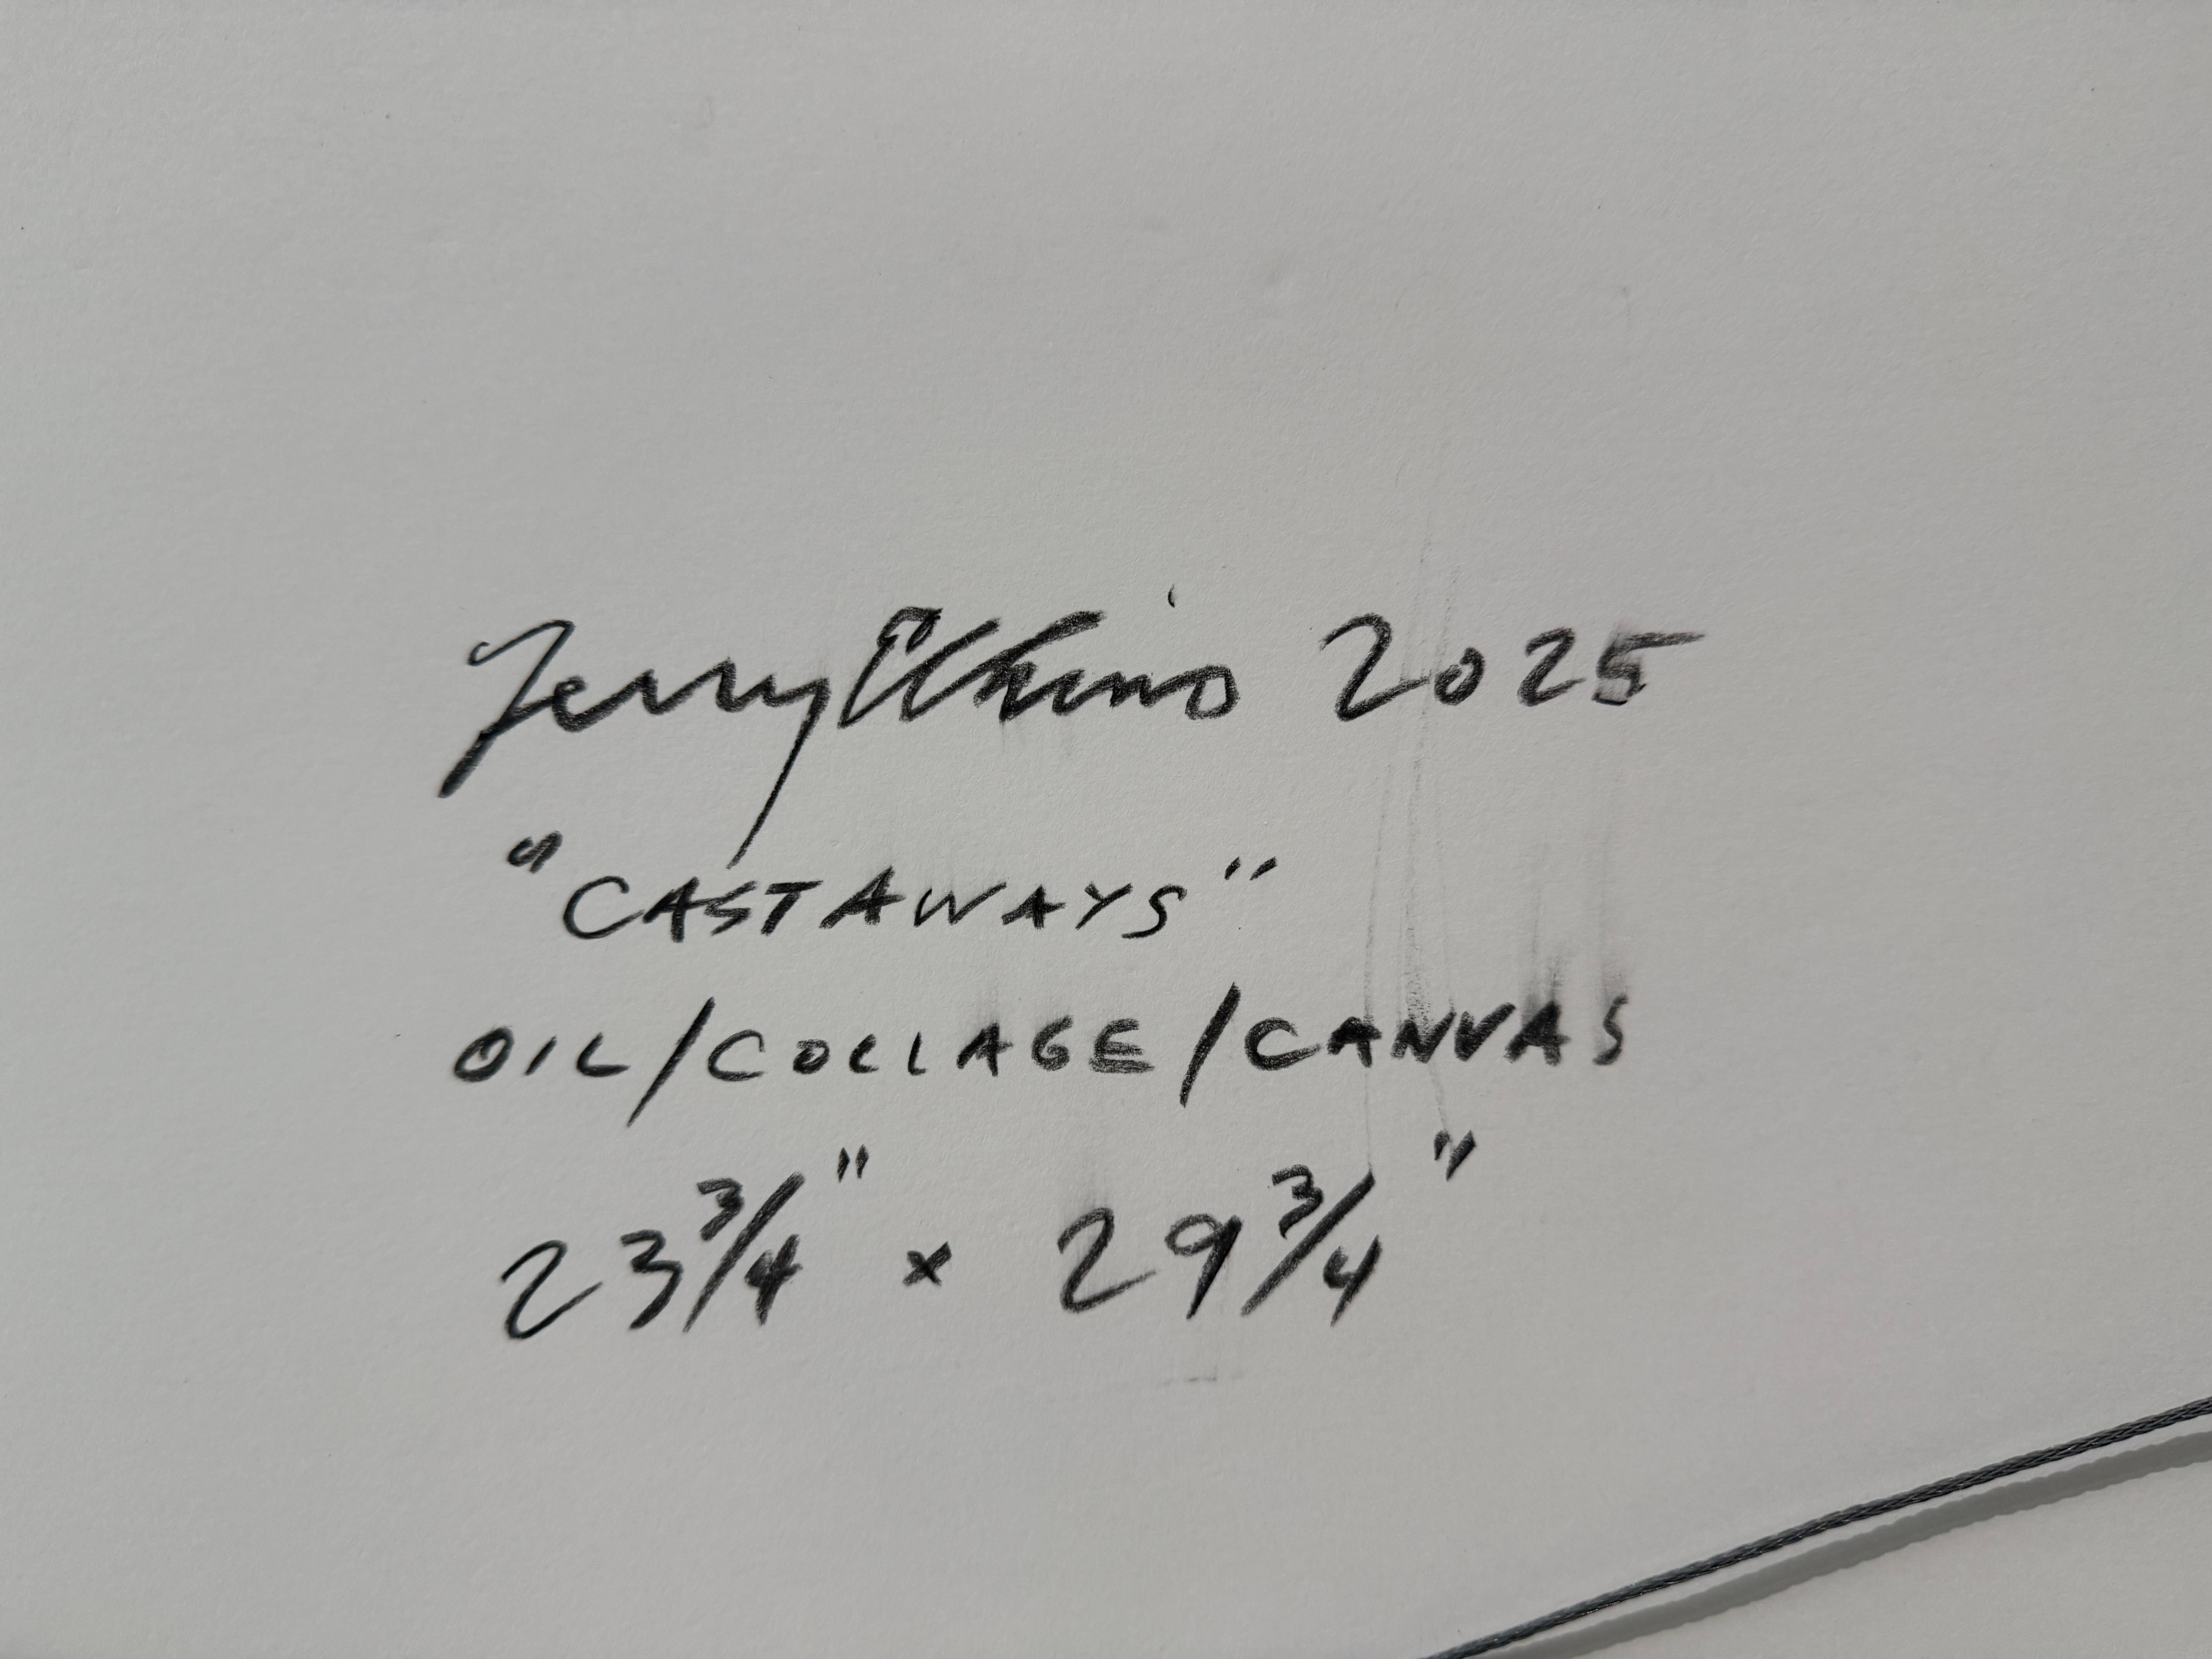 Jerry 2025
"CASTAWAYS"
OIL/COLLAGE/CANVAS
23 3/4" x 29 3/4"